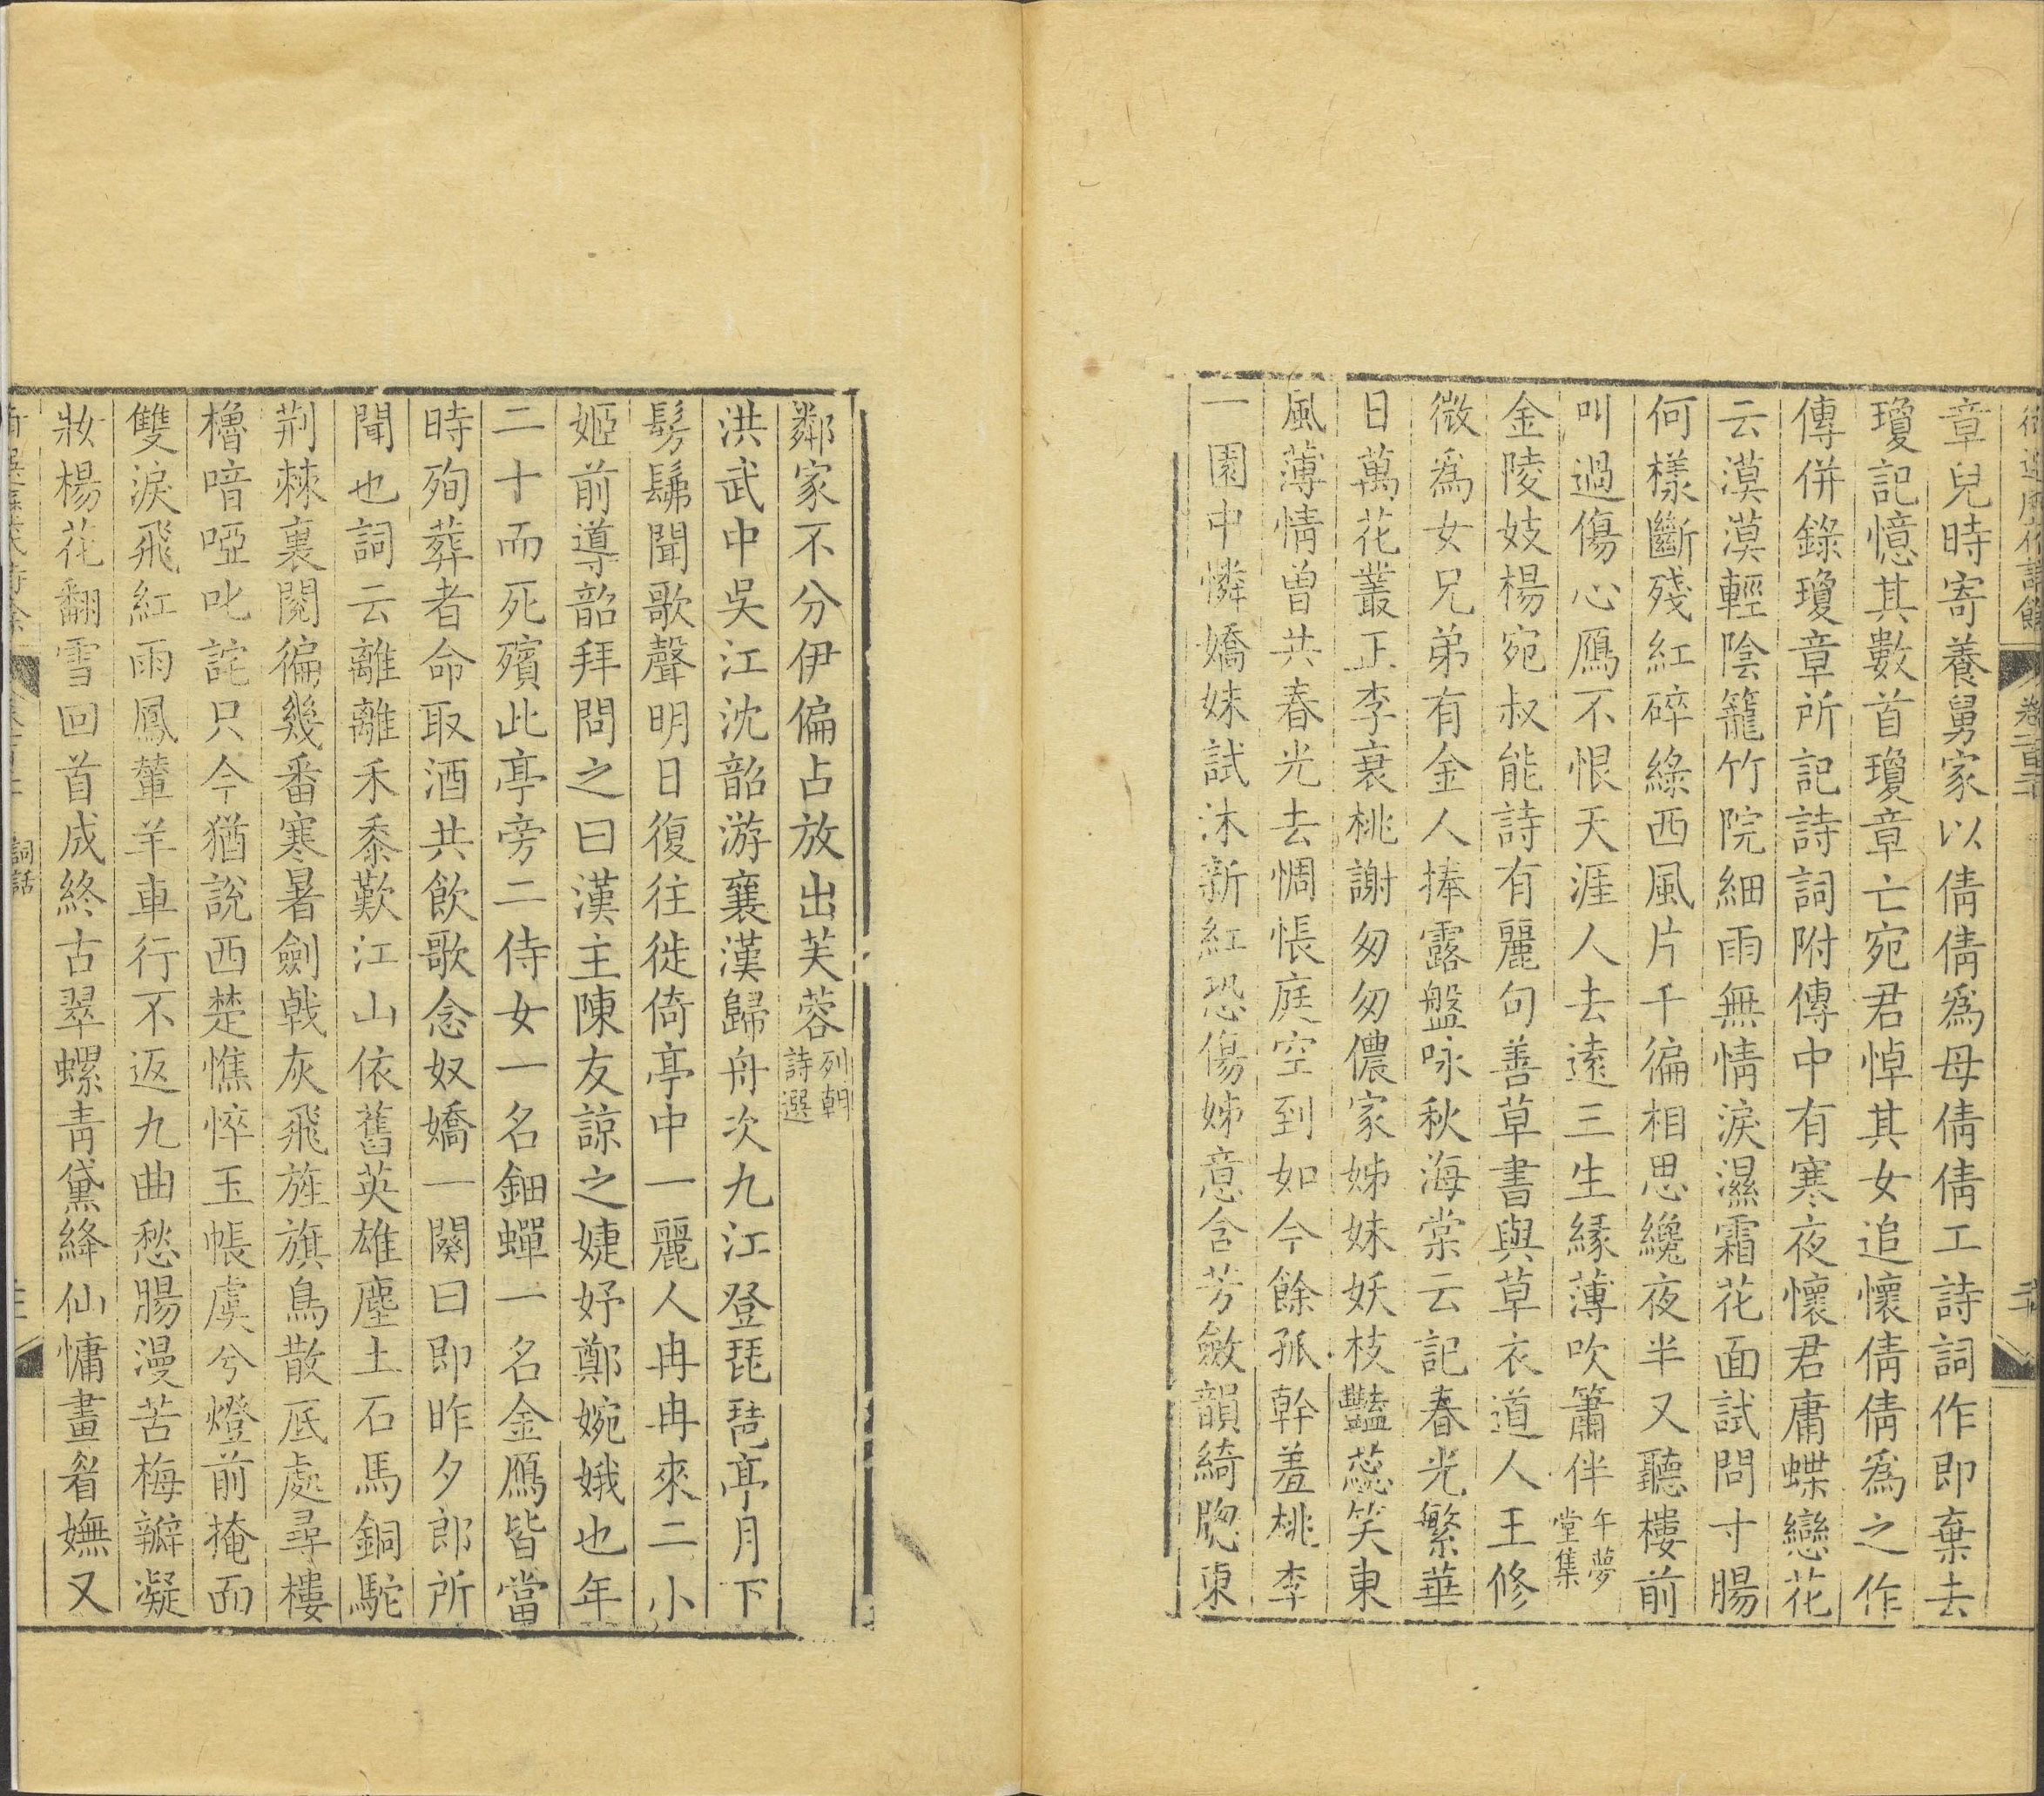 章兒時寄養舅家以倩倩爲母倩倩工詩詞作即棄去
瓊記憶其數首瓊章亡宛君悼其女追懷倩倩爲之作
傳併錄瓊章所記詩詞附傳中有寒夜懷君庸蝶戀花
云漠漠輕陰籠竹院細雨無情淚濕霜花面試問寸腸
何樣斷殘紅碎綠西風片千徧相思纔夜半又聽樓前
叫過傷心鴈不恨天涯人去遠三生緣薄吹簫伴午夢堂集
金陵妓楊宛叔能詩有麗句善草書與草衣道人王修
微爲女兄弟有金人捧露盤咏秋海棠云記春光繁華
日萬花叢正李衰桃謝匆匆儂家姊妹妖枝豔蕊笑東
風薄情曾共春光去惆悵庭空到如今餘孤幹羞桃李
一園中憐嬌妹試沐新紅恐傷姊意含芳斂韻綺牎東
鄰家不分伊偏占放出芙蓉列朝詩選
洪武中吳江沈韶游襄漢歸舟次九江登琵琶亭月下
髣髴聞歌聲明日復往徙倚亭中一麗人冉冉來二小
姬前導韶拜問之曰漢主陳友諒之婕妤鄭婉娥也年
二十而死殯此亭旁二侍女一名鈿蟬一名金鴈皆當
時殉葬者命取酒共飲歌念奴嬌一闋曰即昨夕郎所
聞也詞云離離禾黍歎江山依舊英雄塵土石馬銅駝
荆棘裏閱徧幾番寒暑劍戟灰飛旌旗鳥散底處尋樓
櫓喑啞叱詫只今猶說西楚憔悴玉帳虞兮燈前掩面
雙淚飛紅雨鳳輦羊車行不返九曲愁腸漫苦梅瓣凝
妝楊花翻雪回首成終古翠螺靑黛絳仙慵畫眉嫵又
詞話